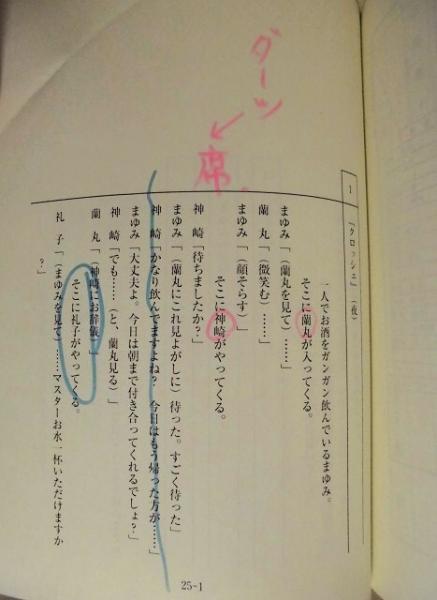 ダーツ
席
1
「クロッシェ」(夜)
一人でお酒をガンガン飲んでいるまゆみ。
そこに蘭丸が入ってくる。
まゆみ「(蘭丸を見て)……」
蘭丸「(微笑む)……」
まゆみ「(顔そらす)」
そこに神崎がやってくる。
神崎「待ちましたか?」
まゆみ「(蘭丸にこれ見よがしに)待った。すごく待った」
神崎「かなり飲んでますよね? 今日はもう帰った方が……」
まゆみ「大丈夫よ。今日は朝まで付き合ってくれるでしょ?」
神崎「でも……(と、蘭丸見る)」
蘭丸「(神崎にお辞儀)」
そこに礼子がやってくる。
礼子「(まゆみを見て)……マスターお水一杯いただけますか
?」
25-1